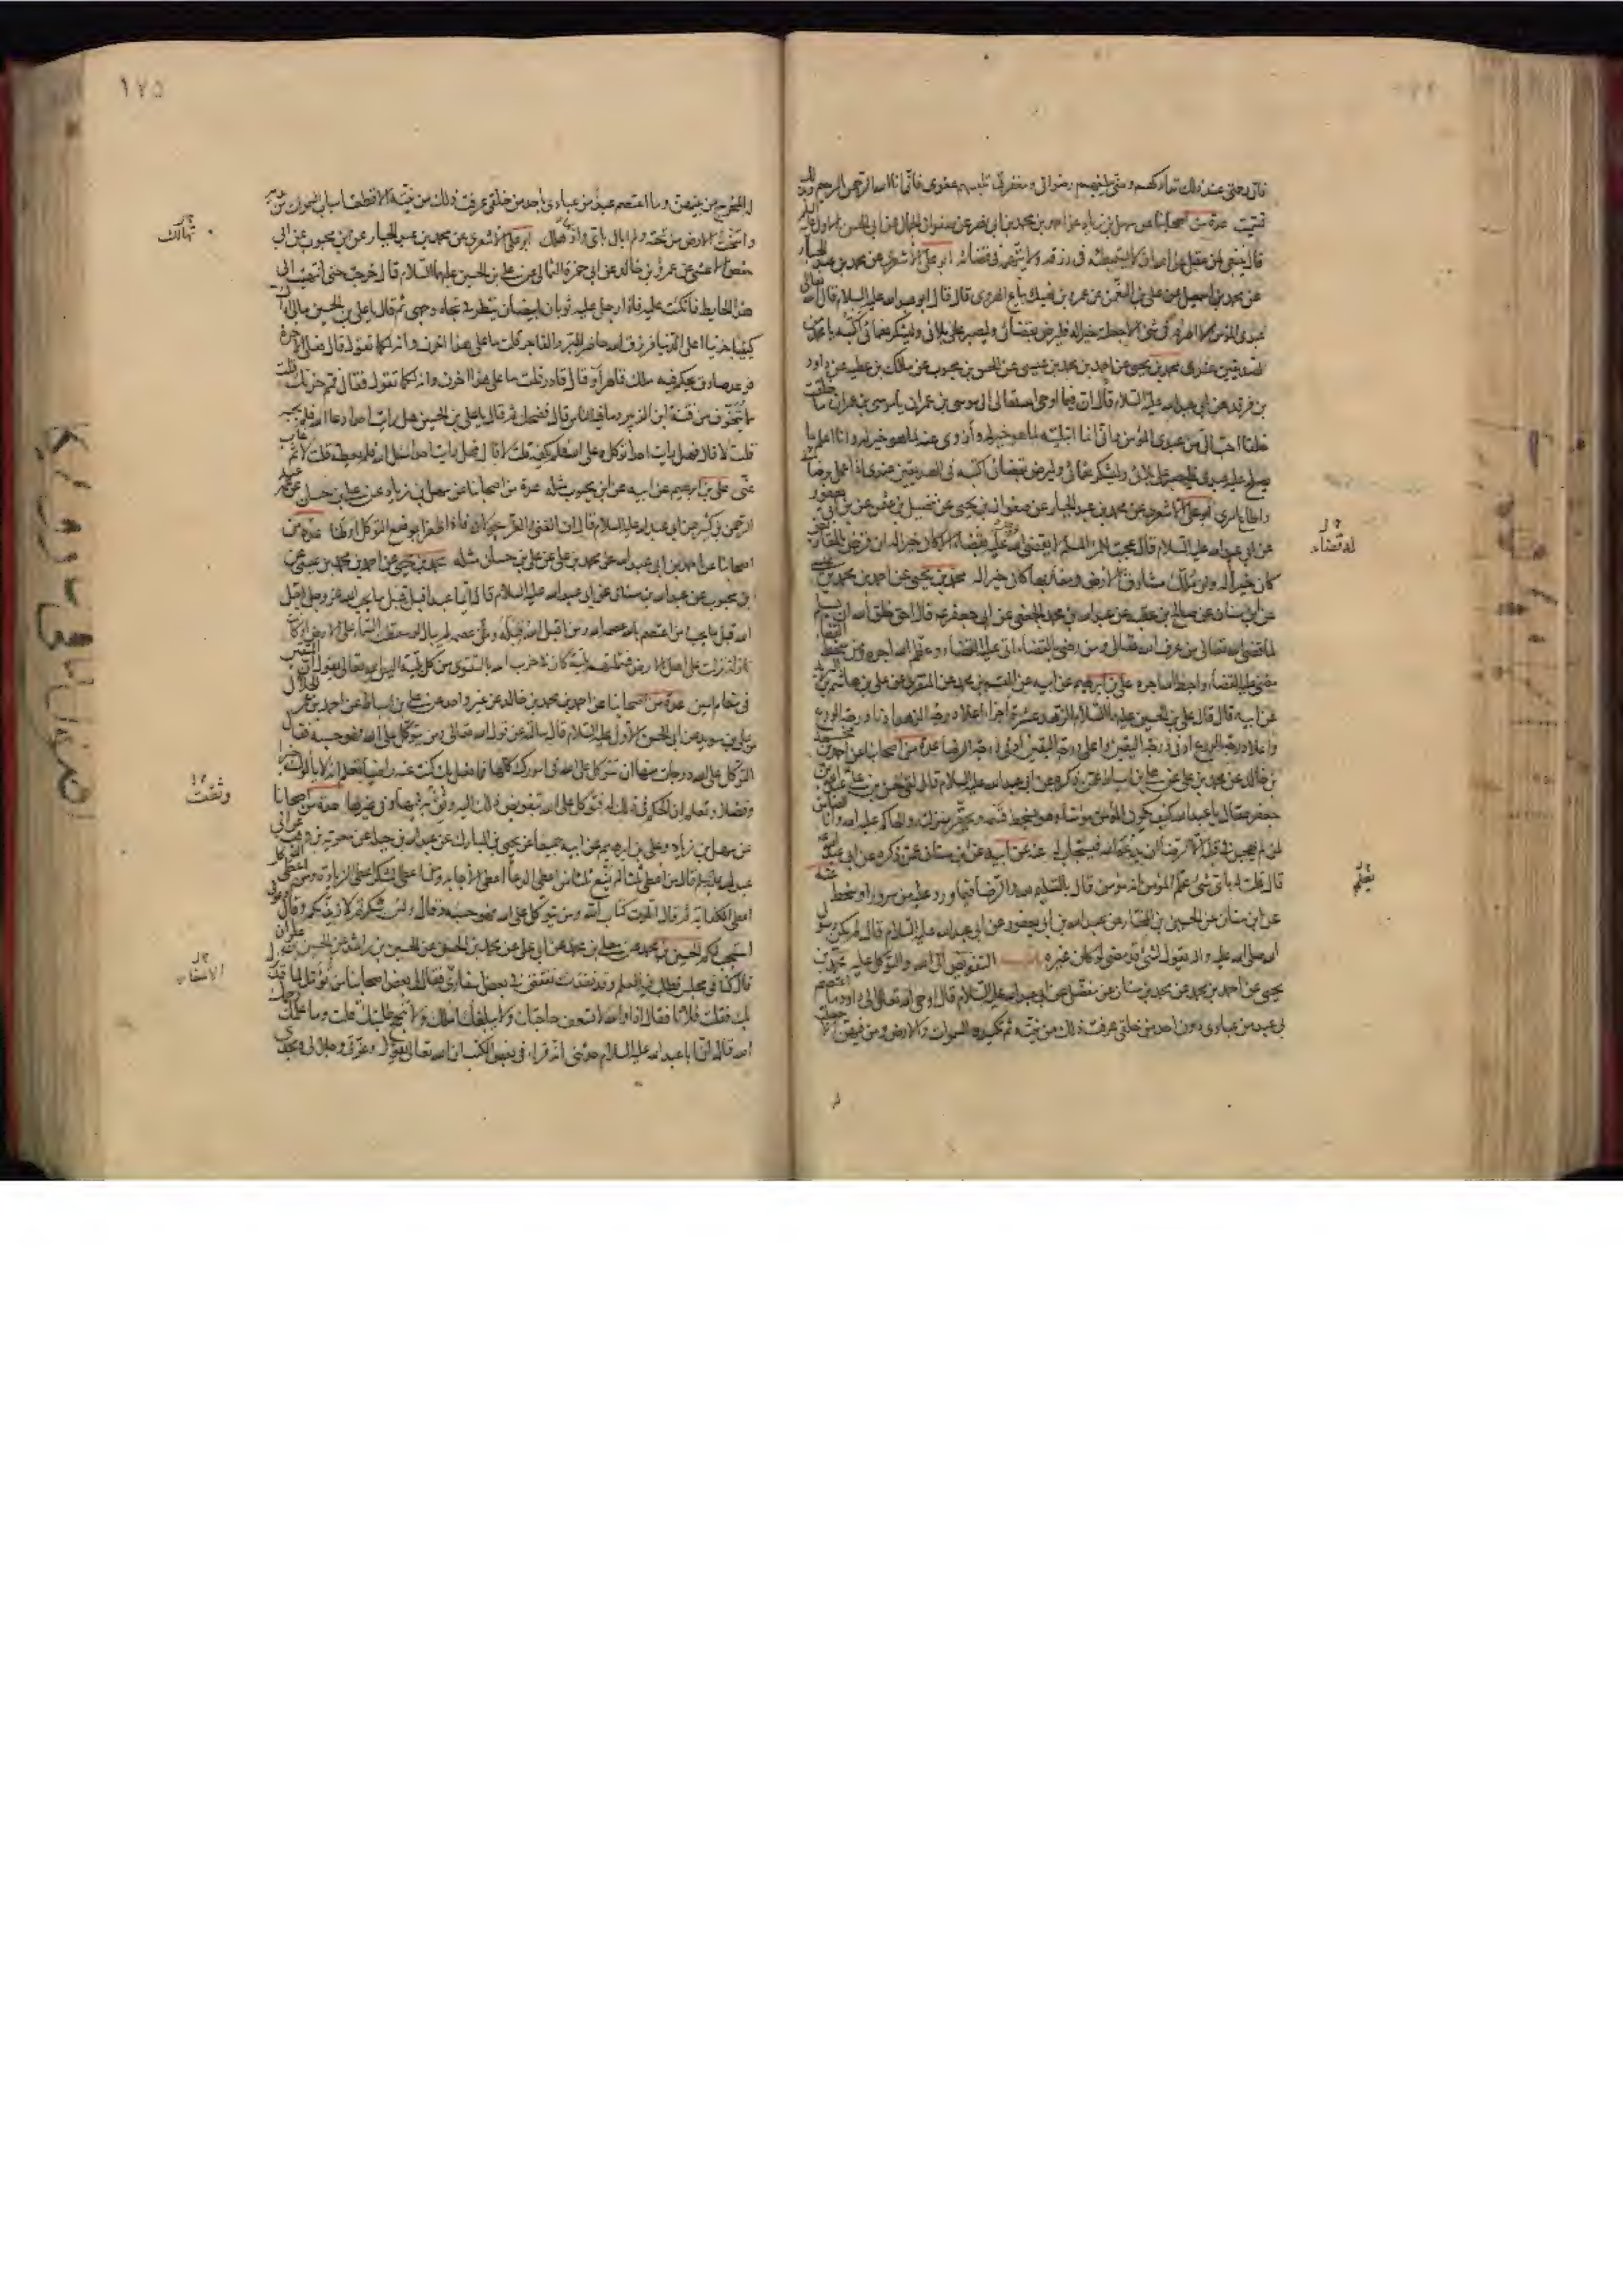 فان رحمتي عند ذلك تداركهم ومنّي يبلغهم رضواني ومغفرتي تلبسهم عفوي فانّي انا الله الرحمن الرحيم وبذلك
تسمّيت عدة من اصحابنا عن سهل بن زياد عن احمد بن محمد بن ابي نصر عن صفوان الجمال عن ابي الحسن الاول عليه السلم
قال ينبغي لمن عقل عن الله ان لا يستبطئه في رزقه ولا يتّهمه في قضائه ابو علي الاشعري عن محمد بن عبد الجبار
عن محمد بن اسمعيل عن علي بن النعمن عن عمرو بن نهيك بياع الهروي قال قال ابو عبد الله عليه السلام قال الله تعالى
عبدي المؤمن لا اصرفه في شئ الا جعلته خيرا له فليرض بقضائي وليصبر على بلائي وليشكر نعمائي اكتبه يا محمد من
الصديقين عندي محمد بن يحيى عن احمد بن محمد بن عيسى عن الحسن بن محبوب عن مالك بن عطية عن داود
بن فرقد عن ابي عبد الله عليه السلام قال ان فيما اوحى الله تعالى الى موسى بن عمران يا موسى بن عمران ما خلقت
خلقا احبّ الي من عبدي المؤمن فاني انما ابتليته لما هو خير له وازوي عنه لما هو خير له وانا اعلم بما
يصلح عليه عبدي فليصبر على بلائي وليشكر نعمائي وليرض بقضائي اكتبه في الصديقين عندي اذا عمل برضائي
واطاع امري ابو علي الاشعري عن محمد بن عبد الجبار عن صفوان بن يحيى عن فضيل بن عثمن عن بن ابي يعفور
عن ابي عبد الله عليه السلام قال عجبت للمرء المسلم لا يقضي الله عليه قضاء الا كان خيرا له ان قرض بالمقاريض
كان خيرا له وان ملك مشارق الارض ومغاربها كان خيرا له محمد بن يحيى عن احمد بن محمد بن عيسى
عن ابن سنان عن صالح بن عقبة عن عبد الله بن محمد الجعفي عن ابي جعفر ع قال احق خلق الله ان يسلم
لما قضى الله تعالى من عرف الله تعالى ومن رضي بالقضاء اتى عليه القضاء وعظّم الله اجره ومن سخط القضاء
مضى عليه القضاء واحبط الله اجره علي بن ابرهيم عن ابيه عن القسم بن محمد عن المنقري عن علي بن هاشم بن البريد
عن ابيه قال قال علي بن الحسين عليهما السلام الزهد عشرة اجزاء اعلا درجة الزهد ادنا درجة الورع
واعلا درجة الورع ادنى درجة اليقين واعلى درجة اليقين ادنى درجة الرضا عدة من اصحابنا عن احمد بن محمد
بن خالد عن محمد بن علي عن علي بن اسباط عمّن ذكره عن ابي عبد الله عليه السلام قال لقي الحسن بن علي عبد الله بن
جعفر فقال يا عبد الله كيف يكون المؤمن مؤمنا وهو يسخط قسمه ويحقّر منزلته والحاكم عليه الله وانا الضامن
لمن لم يهجس في قلبه الا الرضا ان يدعو الله فيستجاب له عنه عن ابيه عن ابن سنان عمّن ذكره عن ابي عبد الله ع
قال قلت له باي شئ علم المؤمن انه مؤمن قال بالتسليم لله والرضا فيما ورد عليه من سرور او سخط عنه
عن ابن سنان عن الحسين بن المختار عن عبد الله بن ابي يعفور عن ابي عبد الله عليه السلام قال لم يكن رسول
الله صلى الله عليه واله يقول لشئ قد مضى لو كان غيره التفويض الى الله والتوكل عليه محمد بن
يحيى عن احمد بن محمد عن محمد بن سنان عن مفضل عن ابي عبد الله عليه السلام قال اوحى الله تعالى الى داود ما اعتصم
بي عبد من عبادي دون احد من خلقي عرفت ذلك من نيّته ثم تكيده السموات والارض ومن فيهن الا جعلت
له قضاء
١٧٥
له المخرج من بينهن وما اعتصم عبد من عبادي باحد من خلقي عرفت ذلك من نيّته الا قطعت اسباب السموات من بين يديه
واسخت الارض من تحته ولم ابال باي واد هلك ابو علي الاشعري عن محمد بن عبد الجبار عن ابن محبوب عن ابي
حفص الاعشى عن عمرو بن خالد عن ابي حمزة الثمالي عن علي بن الحسين عليهما السلام قال خرجت حتى انتهيت الى
هذا الحايط فاتكئت عليه فاذا رجل عليه ثوبان ابيضان ينظر في تجاه وجهي ثم قال يا علي بن الحسين مالي اراك
كئيبا حزينا اعلى الدنيا فرزق الله حاضر للبر والفاجر قلت ما على هذا احزن وانه لكما تقول قال فعلى الاخرة
فوعد صادق يحكم فيه ملك قاهر او قال قادر قلت ما على هذا احزن وانه لكما تقول فقال فممّ حزنك قلت
مما يتخوّف من فتنة ابن الزبير وما فيه الناس قال فضحك ثم قال يا علي بن الحسين هل رايت احدا دعا الله فلم يجبه
قلت لا قال فهل رايت احدا توكل على الله فلم يكفه قلت لا قال فهل رايت احدا سئل الله فلم يعطه قلت لا ثم غاب
عنّي علي بن ابرهيم عن ابيه عن ابن محبوب مثله عدة من اصحابنا عن سهل بن زياد عن علي بن حسان عن عمه عبد
الرحمن بن كثير عن ابي عبد الله عليه السلام قال ان الغنى والعزّ يجولان فاذا ظفرا بموضع التوكل اوطنا عدة من
اصحابنا عن احمد بن ابي عبد الله عن محمد بن علي عن علي بن حسان مثله محمد بن يحيى عن احمد بن محمد بن عيسى عن
بن محبوب عن عبد الله بن سنان عن ابي عبد الله عليه السلام قال ايّما عبد اقبل قبل ما يحب الله عز وجل اقبل
الله قبل ما يحب ومن اعتصم بالله عصمه الله ومن اقبل الله قبله وعصمه لم يبال لو سقطت السماء على الارض او كانت
نازلة نزلت على اهل الارض فشملتهم بليّة كان في حزب الله بالتقوى من كل بليّة اليس الله تعالى يقول ان المتقين
في مقام امين عدة من اصحابنا عن احمد بن محمد بن خالد عن غير واحد عن علي بن اسباط عن احمد بن عمر الحلال
عن علي بن سويد عن ابي الحسن الاول عليه السلام قال سالته عن قول الله تعالى ومن يتوكل على الله فهو حسبه فقال
التوكل على الله درجات منها ان تتوكل على الله في امورك كلها فما فعل بك كنت عنه راضيا تعلم انه لا يالوك خيرا
وفضلا وتعلم ان الحكم في ذلك له فتوكل على الله بتفويض ذلك اليه وثق به فيها وفي غيرها عدة من اصحابنا
عن سهل بن زياد وعلي بن ابرهيم عن ابيه جميعا عن يحيى بن المبارك عن عبد الله بن جبلة عن معوية بن وهب عن ابي
عبد الله عليه السلم قال من اعطي ثلثا لم يمنع ثلثا من اعطي الدعا اعطي الاجابة ومن اعطي الشكر اعطي الزيادة ومن اعطي التوكل
اعطي الكفاية ثم قال اتلوت كتاب الله ومن يتوكل على الله فهو حسبه وقال ولئن شكرتم لازيدنكم وقال ادعوني
استجب لكم الحسين بن محمد عن معلى بن محمد عن ابي علي عن محمد بن الحسن عن الحسين بن راشد عن الحسين بن علوان
قال كنا في مجلس نطلب فيه العلم وقد نفدت نفقتي في بعض الاسفار فقال لي بعض اصحابنا من تؤمّل لما قد نزل
بك فقلت فلانا فقال اذا والله لا تسعف حاجتك ولا يبلغك املك ولا تنجح طلبتك قلت وما علّمك رحمك
الله قال ان ابا عبد الله عليه السلام حدثني انه قرا في بعض الكتب ان الله تعالى يقول وعزّتي وجلالي ومجدي
تهالك
وثقت
الاسفار